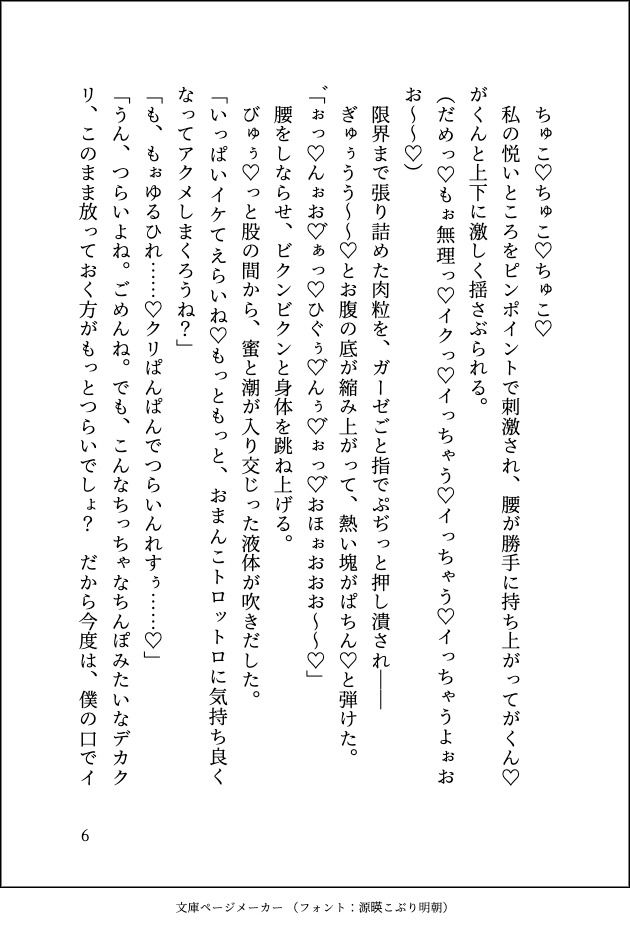 ちゅこ♡ちゅこ♡ちゅこ♡
私の悦いところをピンポイントで刺激され、腰が勝手に持ち上がってがくん♡
がくんと上下に激しく揺さぶられる。
(だめっ♡もぉ無理っ♡イクっ♡イっちゃう♡イっちゃう♡イっちゃうよぉお
お〜〜♡)
限界まで張り詰めた肉粒を、ガーゼごと指でぷぢっと押し潰され――
ぎゅぅうう〜〜♡とお腹の底が縮み上がって、熱い塊がぱちん♡と弾けた。
「゛ぉっ♡んぉお♡゛ぁっ♡ひぐぅ♡゛んぅ♡゛ぉっ♡゛おほぉおおお〜〜♡」
腰をしならせ、ビクンビクンと身体を跳ね上げる。
びゅぅ♡っと股の間から、蜜と潮が入り交じった液体が吹きだした。
「いっぱいイケてえらいね♡もっともっと、おまんこトロットロに気持ち良く
なってアクメしまくろうね？」
「も、もぉゆるひれ……♡クリぱんぱんでつらいんれすぅ……♡」
「うん、つらいよね。ごめんね。でも、こんなちっちゃなちんぽみたいなデカク
リ、このまま放っておく方がもっとつらいでしょ？　だから今度は、僕の口でイ
6
文庫ページメーカー（フォント：源暎こぶり明朝）